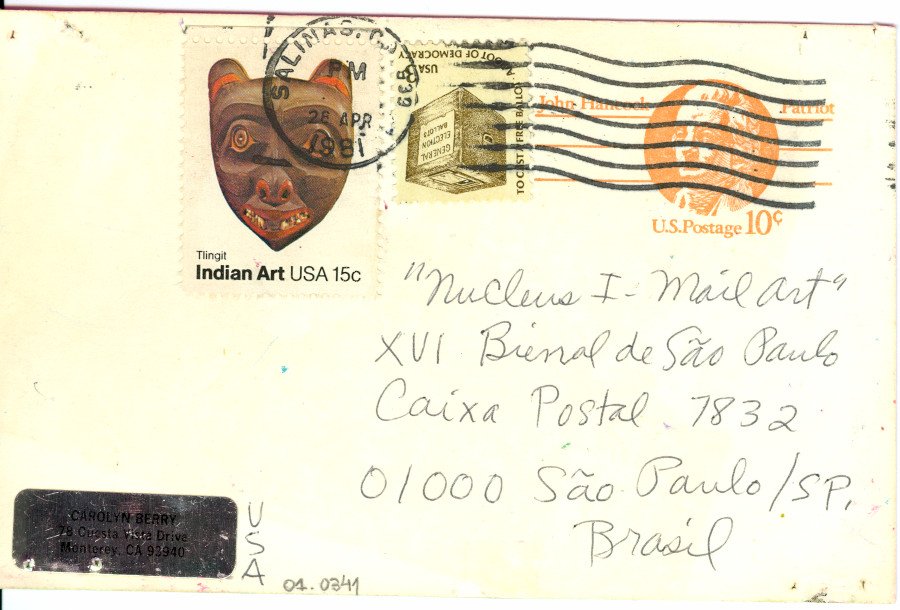 SALINAS, CA 939
PM
28 APR
1981
USA
A ROOT OF DEMOCRACY
TO CAST A FREE BALLOT
GENERAL
ELECTION
BALLOTS
John Hancock
Patriot
U.S. Postage 10¢
Tlingit
Indian Art USA 15c
"Nucleus I - Mail Art"
XVI Bienal de São Paulo
Caixa Postal 7832
01000 São Paulo/SP.
Brasil
CAROLYN BERRY
78 Cuesta Vista Drive
Monterey, CA 93940
USA
01.0341